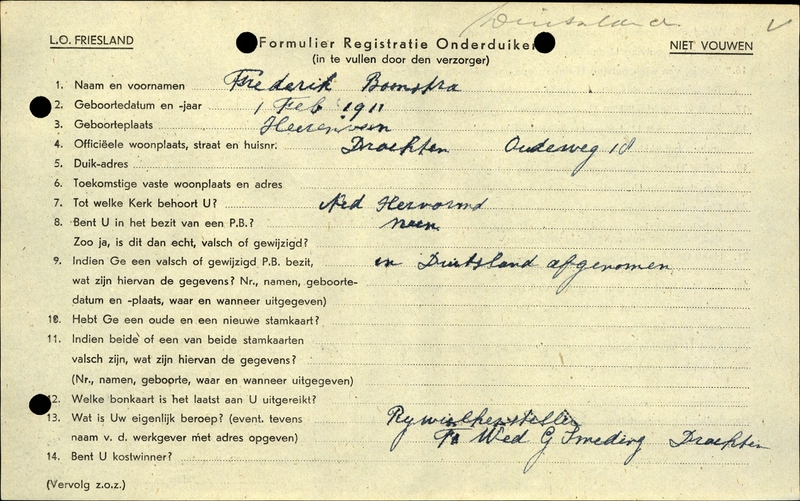 Duitsland V
L.O. FRIESLAND
Formulier Registratie Onderduiker
NIET VOUWEN
(in te vullen door den verzorger)
1. Naam en voornamen Frederik Boonstra
2. Geboortedatum en -jaar 1 Feb 1911
3. Geboorteplaats Heerenveen
4. Officiëele woonplaats, straat en huisnr. Drachten Oudeweg 18
5. Duik-adres
6. Toekomstige vaste woonplaats en adres
7. Tot welke Kerk behoort U? Ned Hervormd
8. Bent U in het bezit van een P.B.? neen
Zoo ja, is dit dan echt, valsch of gewijzigd?
9. Indien Ge een valsch of gewijzigd P.B. bezit, in Duitsland afgenomen
wat zijn hiervan de gegevens? Nr., namen, geboorte-
datum en -plaats, waar en wanneer uitgegeven)
10. Hebt Ge een oude en een nieuwe stamkaart?
11. Indien beide of een van beide stamkaarten
valsch zijn, wat zijn hiervan de gegevens?
(Nr., namen, geboorte, waar en wanneer uitgegeven)
12. Welke bonkaart is het laatst aan U uitgereikt?
13. Wat is Uw eigenlijk beroep? (event. tevens Rywielhersteller
naam v. d. werkgever met adres opgeven) Fa Wed G Smeding Drachten
14. Bent U kostwinner?
(Vervolg z.o.z.)